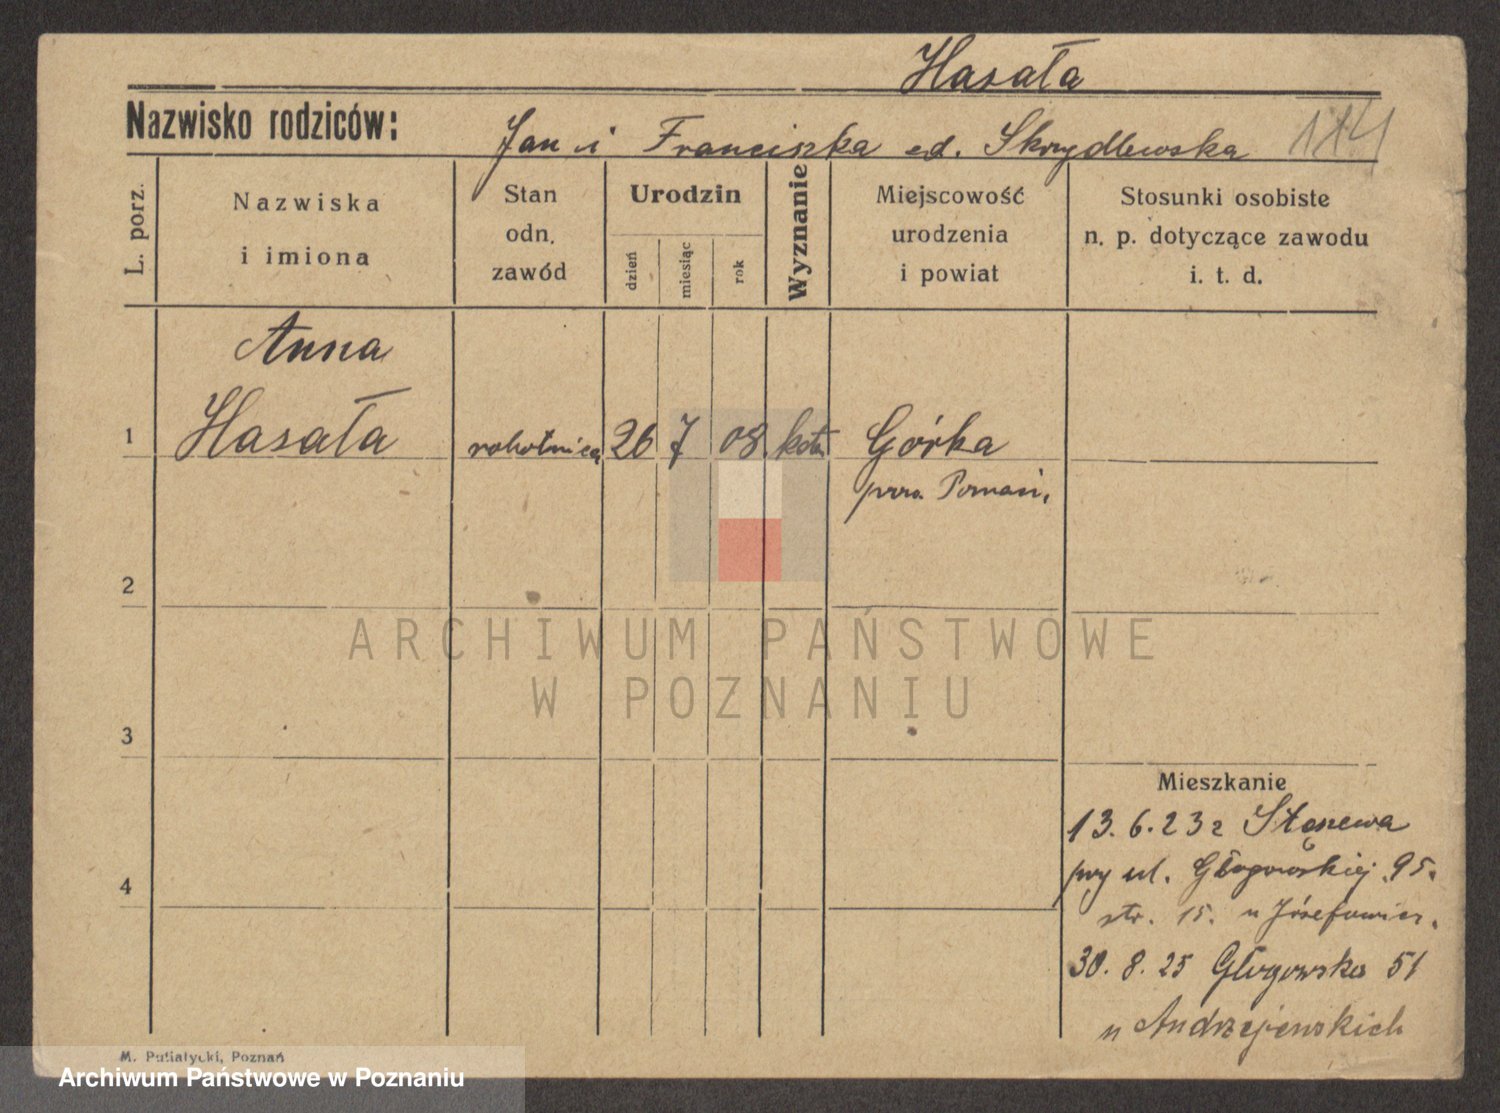 Hasała
Nazwisko rodziców: Jan i Franciszka ed. Skrzydlewska 114
L. porz.
Nazwiska
i imiona
Stan
odn.
zawód
Urodzin
dzień
miesiąc
rok
Wyznanie
Miejscowość
urodzenia
i powiat
Stosunki osobiste
n. p. dotyczące zawodu
i. t. d.
Anna
1 Hasała robotnica 26 7 08 kat. Górka
pow. Poznań.
2
ARCHIWUM PAŃSTWOWE
W POZNANIU
3
Mieszkanie
13.6.23 z Stęszewa
przy ul. Głogowskiej 95.
str. 15. u Józefowicz.
4
30.8.25 Głogowska 51
u Andrzejewskich
M. Putiatycki, Poznań
Archiwum Państwowe w Poznaniu